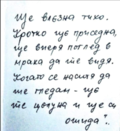 Ще вляза тихо.
Кротко ще приседна,
ще вперя поглед в
мрака да те видя.
Когато се наситя да
те гледам - ще
те целуна и ще си
отида".